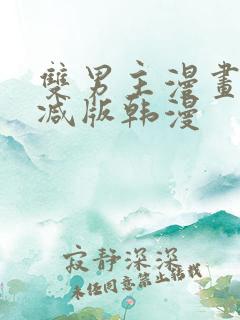 雙男主漫畫
減版韩漫
寂静深深
未经同意禁止转载